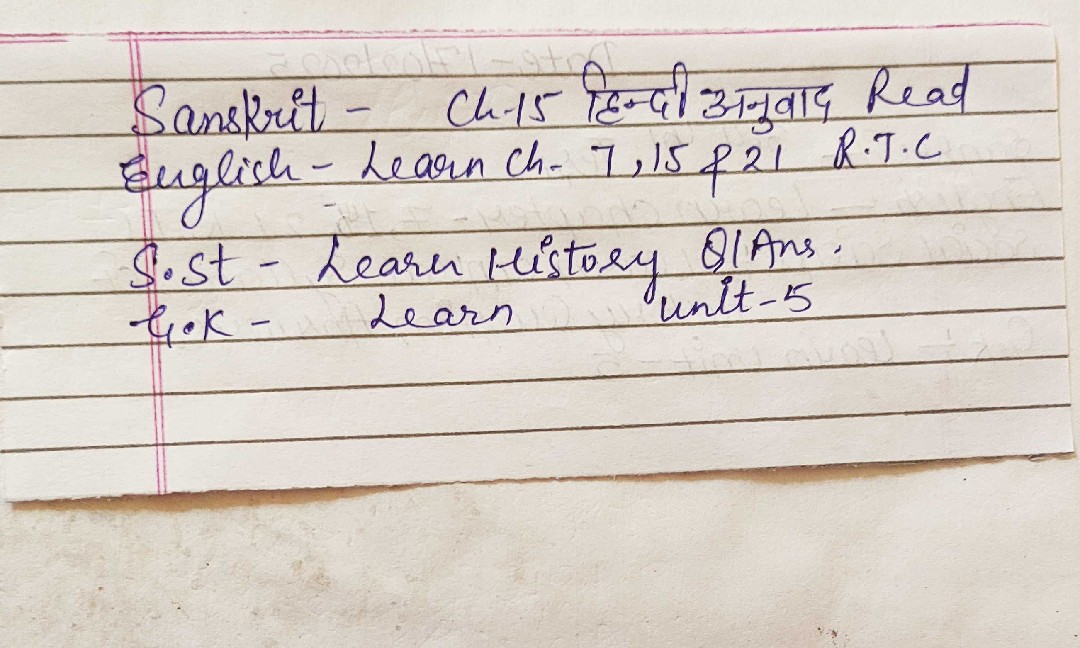 Sanskrit - Ch-15 हिन्दी अनुवाद Read
English - Learn Ch- 7, 15 & 21 R.T.C
S.st - Learn History Q/Ans.
G.K - Learn unit-5